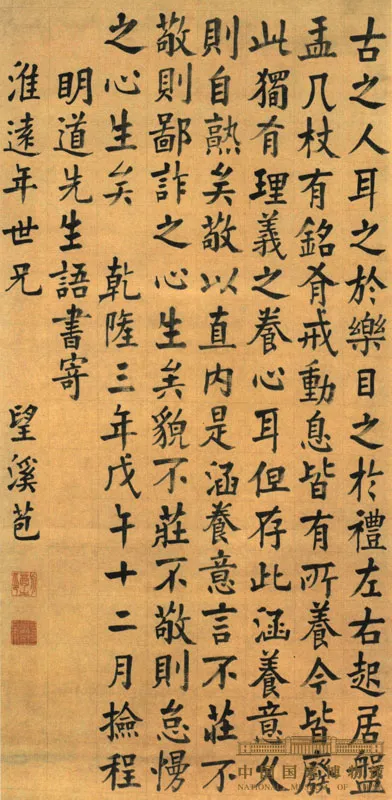 古之人耳之於樂目之於禮左右起居盤
盂几杖有銘有戒動息皆有所養今皆廢
此獨有理義之養心耳但存此涵養意久
則自熟矣敬以直内是涵養意言不莊不
敬則鄙詐之心生矣貌不莊不敬則怠慢
之心生矣 乾隆三年戊午十二月撿程
明道先生語書寄
淮遠年世兄 望溪苞
中国国家博物馆
NATIONAL MUSEUM OF